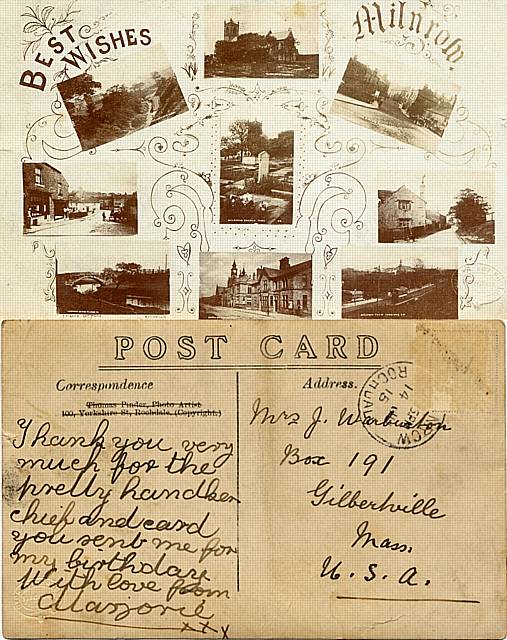 BEST WISHES
Milnrow.
POST CARD
Correspondence
Address.
Thomas Pinder, Photo Artist
100, Yorkshire St, Rochdale. (Copyright.)
Thank you very
much for the
pretty handker
chief and card
you sent me for
my birthday
With love from
Marjorie
x x x
Mrs J. Warburton
Box 191
Gilbertville
Mass.
U. S. A.
ROCHDALE
14
15